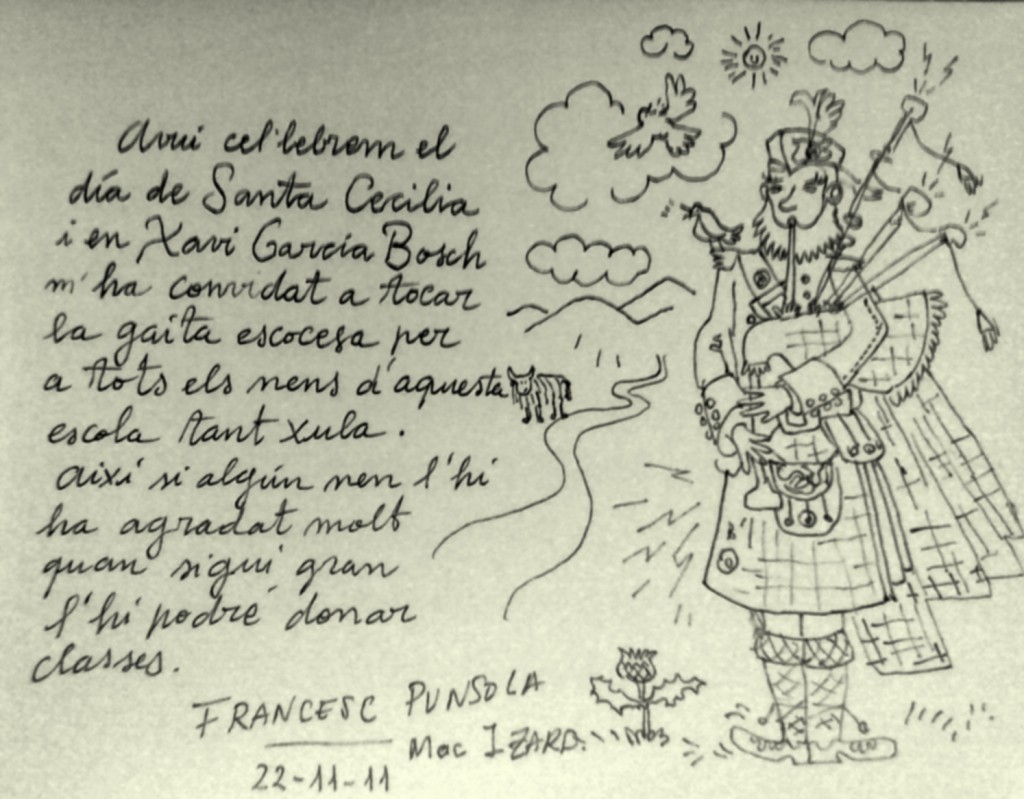 Avui cel·lebrem el
día de Santa Cecilia
i en Xavi García Bosch
m'ha convidat a tocar
la gaita escocesa per
a tots els nens d'aquesta
escola tant xula.
Així si algún nen l'hi
ha agradat molt
quan sigui gran
l'hi podré donar
classes.
FRANCESC PUNSOLA
Mac IZARD.
22-11-11